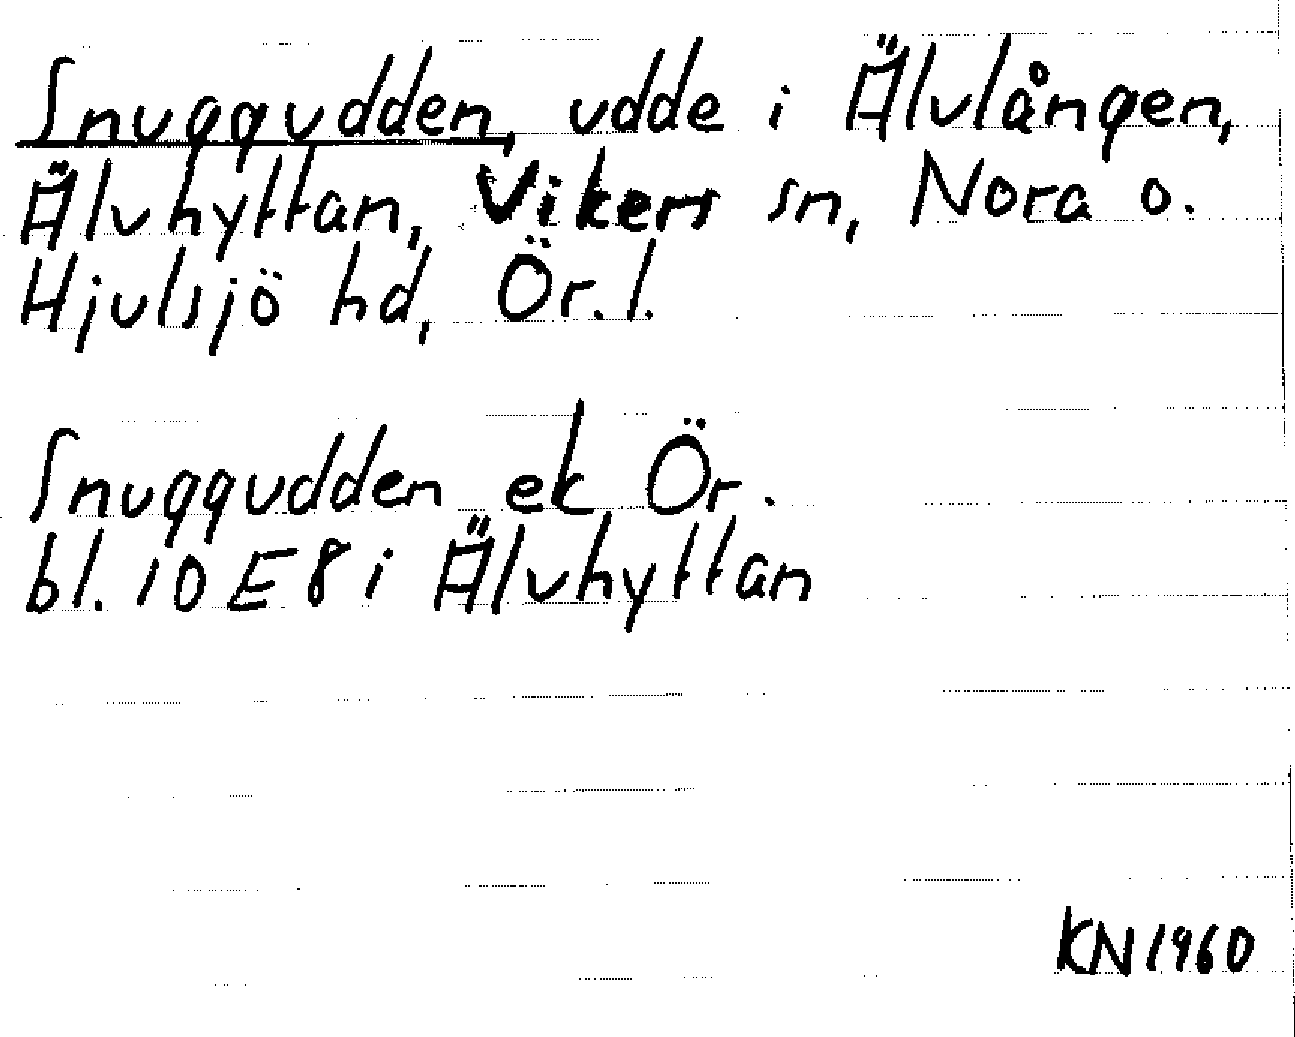 Snuggudden, udde i Älvlången,
Älvhyttan, Vikers sn, Nora o.
Hjulsjö hd, Ör. l.
Snuggudden ek Ör.
bl. 10 E 8 i Älvhyttan
KN 1960